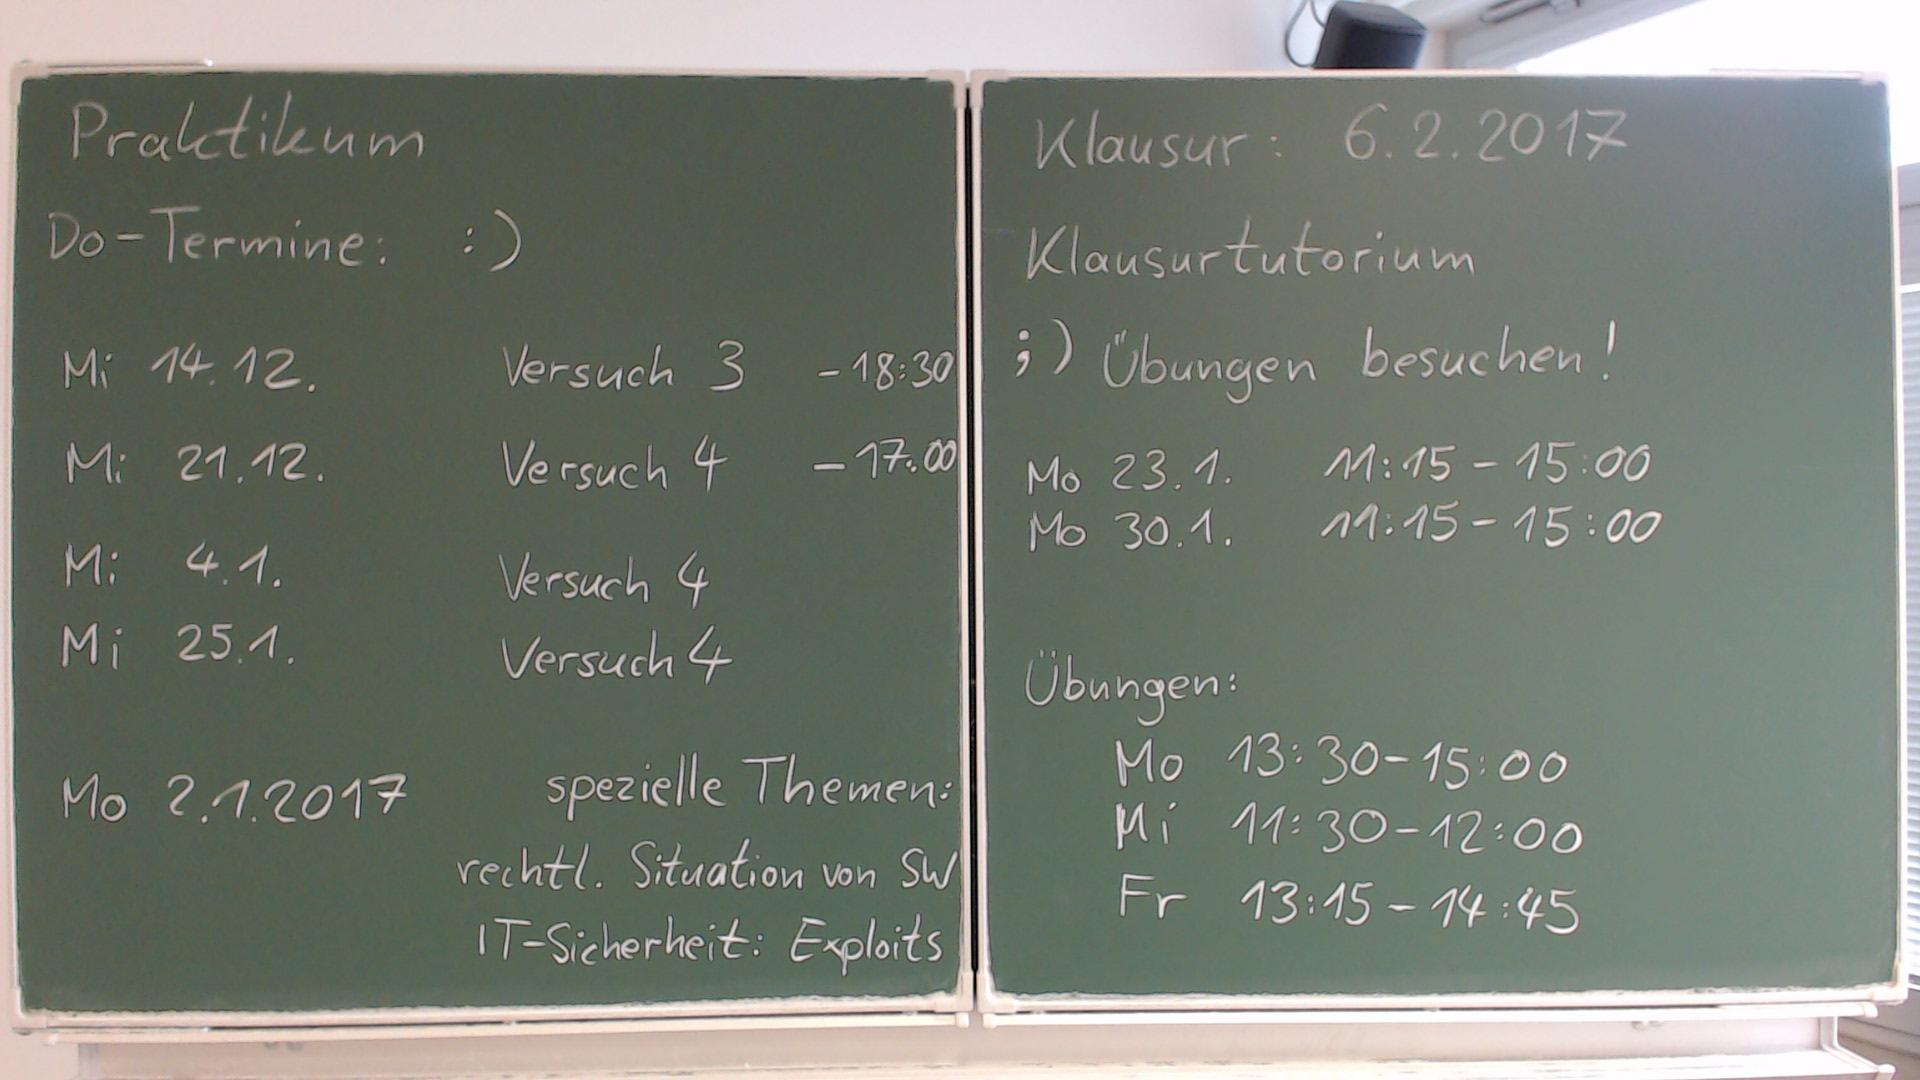 Praktikum
Do-Termine: :)
Mi 14.12. Versuch 3 - 18:30
Mi 21.12. Versuch 4 - 17.00
Mi 4.1. Versuch 4
Mi 25.1. Versuch 4
Mo 2.1.2017 spezielle Themen:
rechtl. Situation von SW
IT-Sicherheit: Exploits
Klausur: 6.2.2017
Klausurtutorium
;) Übungen besuchen!
Mo 23.1. 11:15 - 15:00
Mo 30.1. 11:15 - 15:00
Übungen:
Mo 13:30-15:00
Mi 11:30-12:00
Fr 13:15-14:45